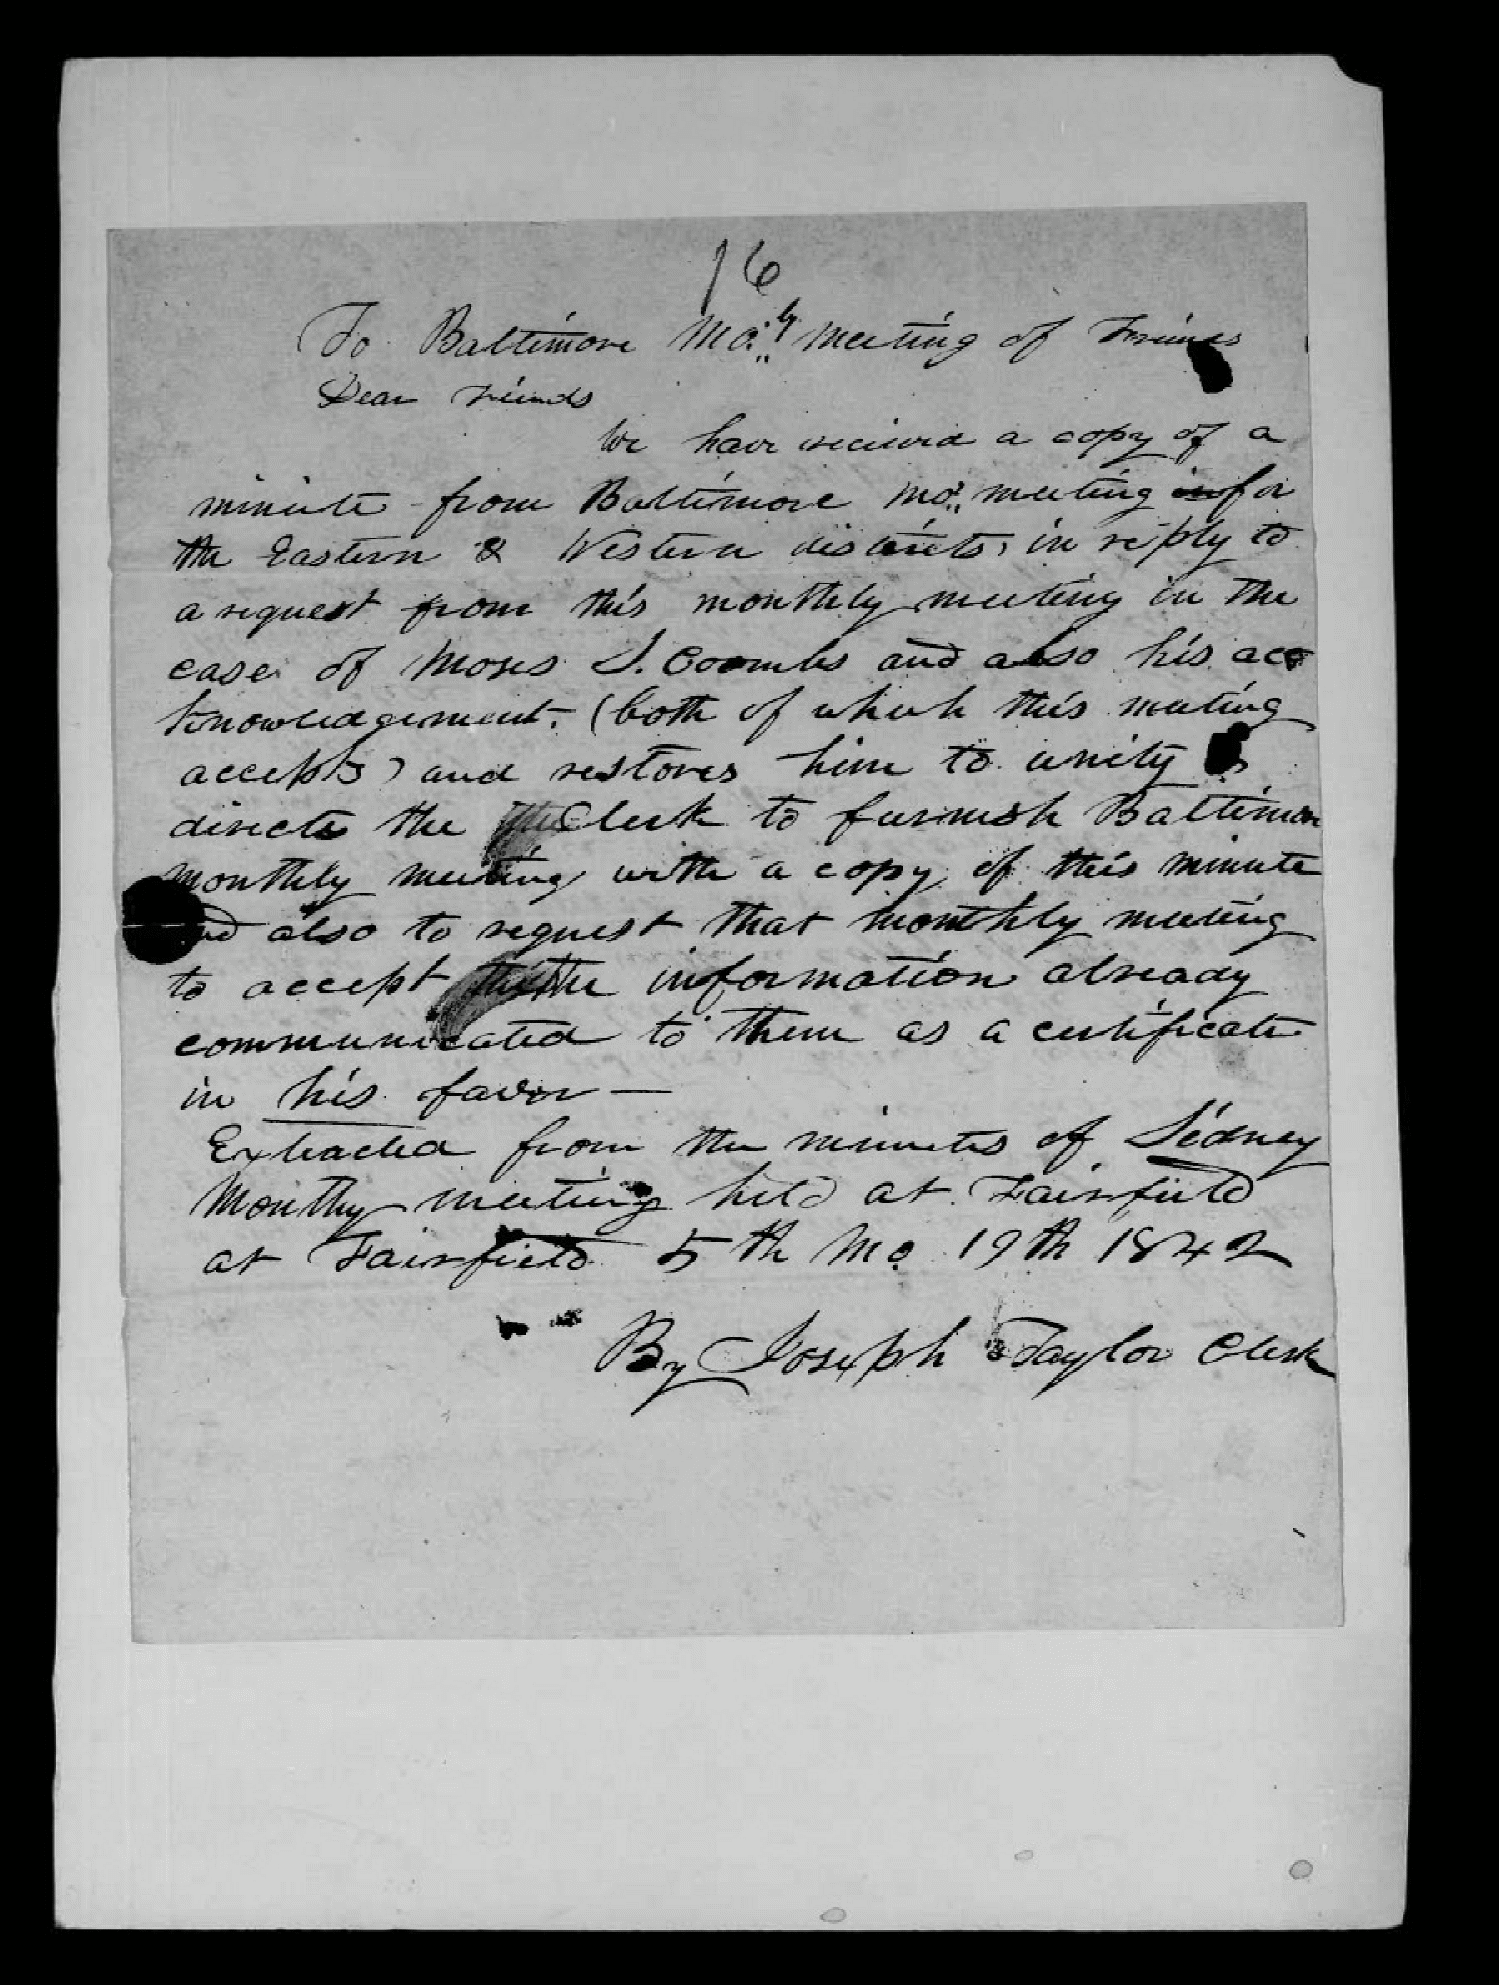 16
To Baltimore Mo.ly Meeting of Friends
Dear Friends
We have received a copy of a
minute from Baltimore Mo. meeting in for
the Eastern & Western districts, in reply to
a request from this monthly meeting in the
case of Moses S. Coombs and also his ac
knowledgement. (both of which this meeting
accepts) and restores him to unity &
directs the Clerk to furnish Baltimore
monthly meeting with a copy of this minute
and also to request that monthly meeting
to accept the information already
communicated to them as a certificate
in his favor —
Extracted from the minutes of Sidney
Monthy meeting held at Fairfield
at Fairfield 5th Mo. 19th 1842
By Joseph Taylor Clerk